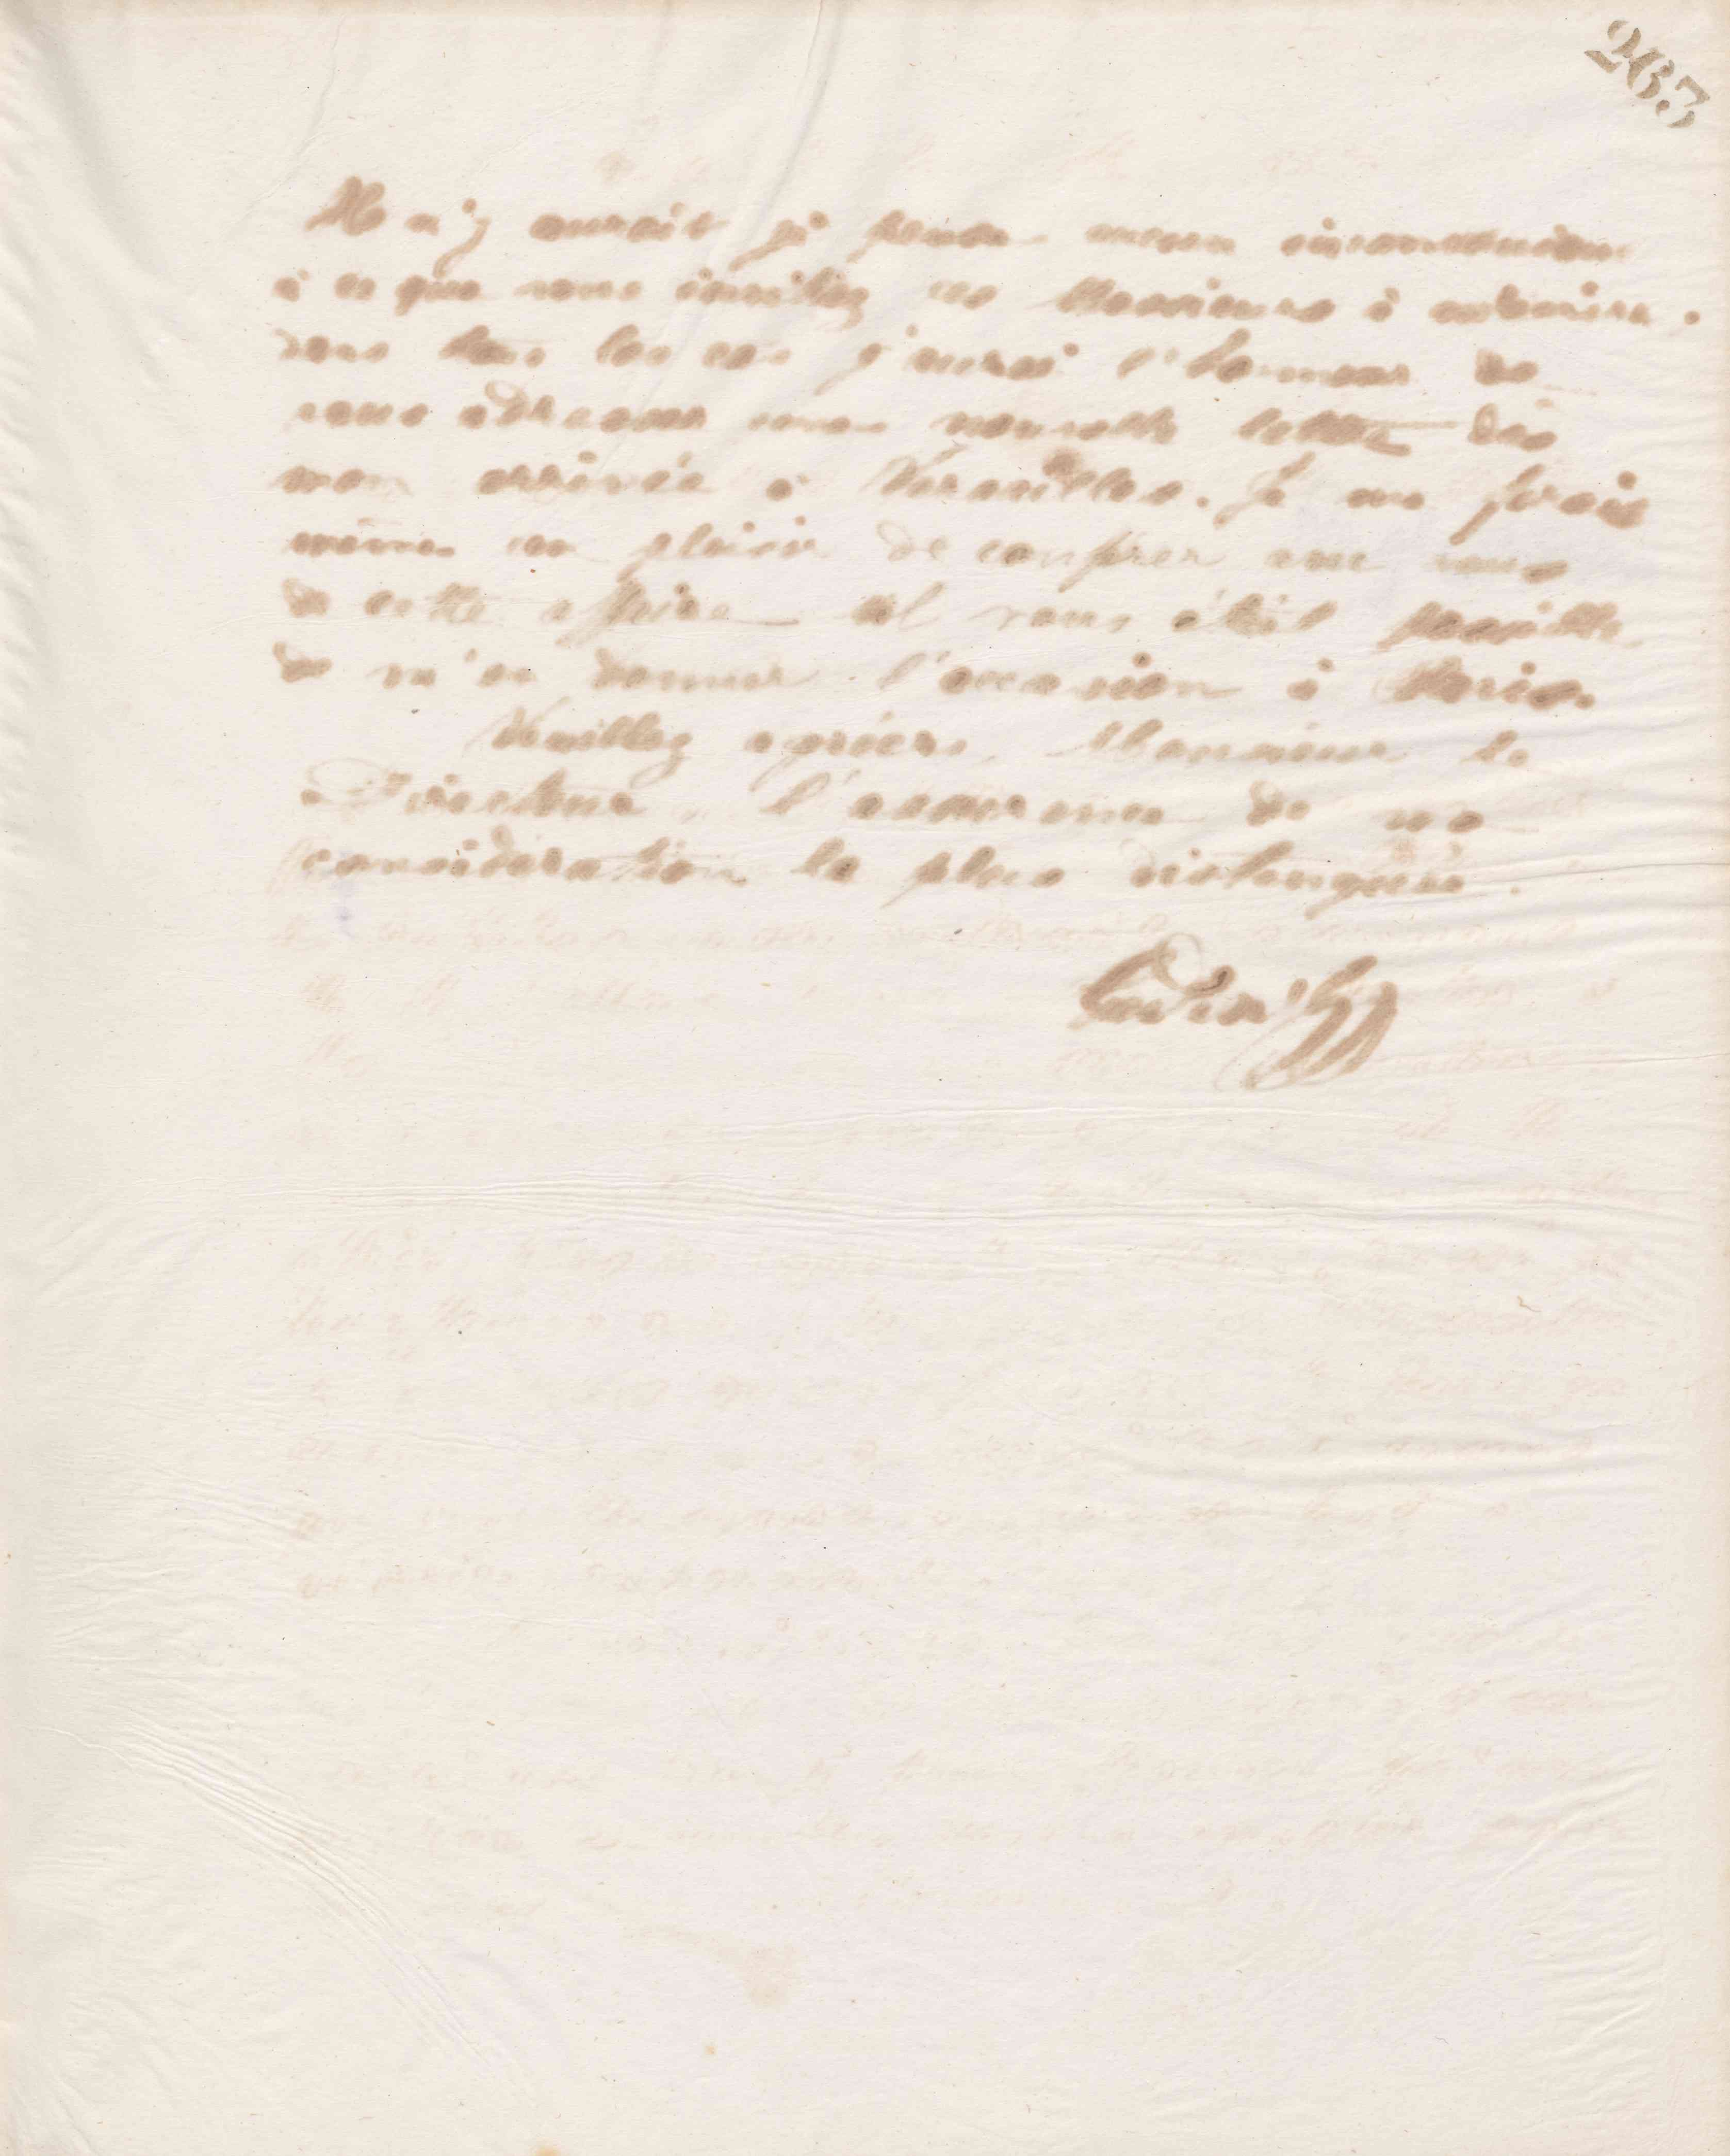 263
Il n'y aurait je pense aucun inconvénient
à ce que vous invitiez ces Messieurs à
dans tous les cas j'aurai l'honneur de
vous adresser une nouvelle lettre dès
mon arrivée à Versailles. Je me ferais
même un plaisir de conférer avec vous
de cette affaire s'il vous était possible
de m'en donner l'occasion à Paris.
Veuillez agréer, Monsieur le
Directeur, l'assurance de ma
considération la plus distinguée.
Godin